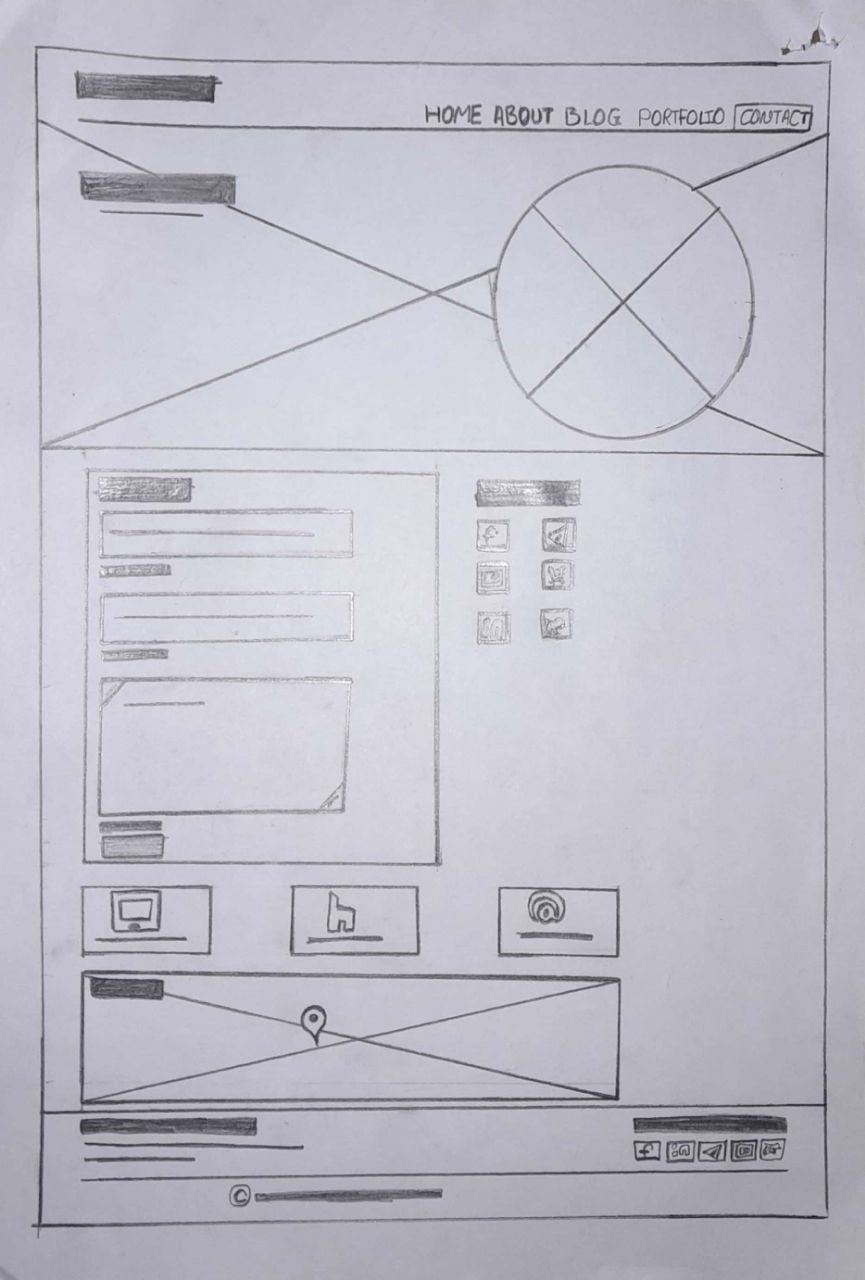 HOME ABOUT BLOG PORTFOLIO CONTACT